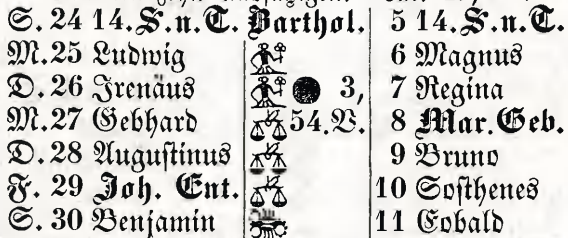 S. 24 14. S. n. T. Barthol. 5 14. S. n. T.
M. 25 Ludwig 6 Magnus
D. 26 Irenäus 3, 7 Regina
M. 27 Gebhard 54. V. 8 Mar. Geb.
D. 28 Augustinus 9 Bruno
F. 29 Joh. Ent. 10 Sosthenes
S. 30 Benjamin 11 Cobald